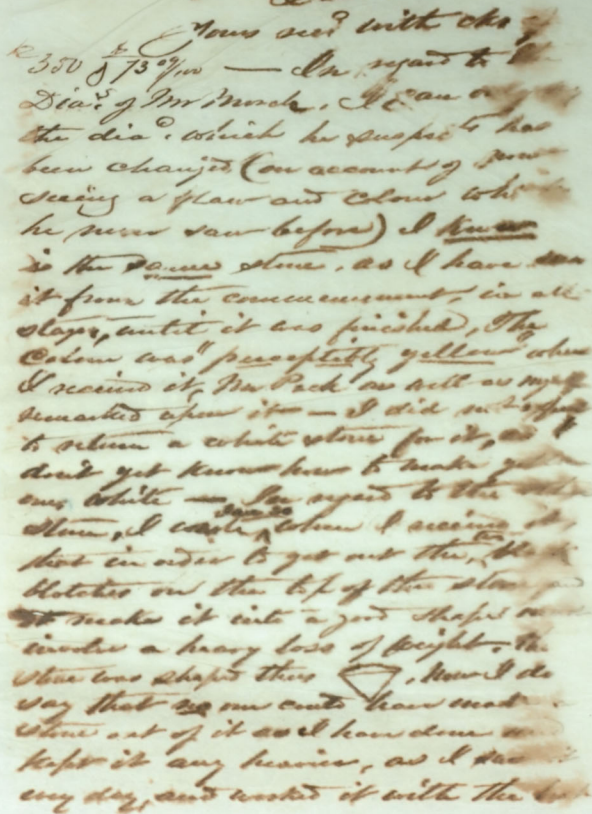 Yours recd with che
350 & 73 09/100 — In regard to
Dias. of Mr Morse. I can
the diao. which he suspects has
been changed (on account of now
seeing a flaw and colour whi
he never saw before) I know
is the same stone, as I have seen
it from the commencement, in all
stages, until it was finished, The
Colour was "perceptibly yellow" when
I received it, Mr Pack as well as myself
remarked upon it — I did not
to return a white stone for it, as I
don't yet know how to make yellow
ones white — In regard to the other
stone, I wrote when I received it,
that in order to get out the two black
blotches on the top of the stone and
make it into a good shape
involve a heavy loss of weight. The
stone was shaped thus . Now I do
say that no one could have made
stone out of it as I have done
kept it any heavier, as I saw it
every day, and worked it with the